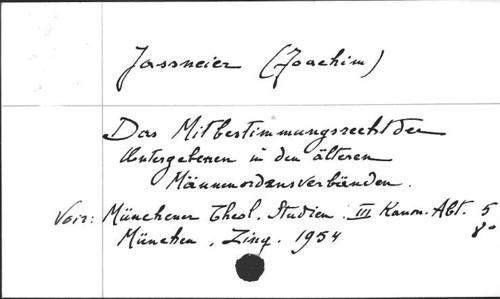 Jassmeier (Joachim)
Das Mitbestimmungsrecht der
Untergebenen in den älteren
Männerordensverbänden.
Voir: Münchener Theol. Studien. III Kanon. Abt. 5
München, Zink. 1954 8º